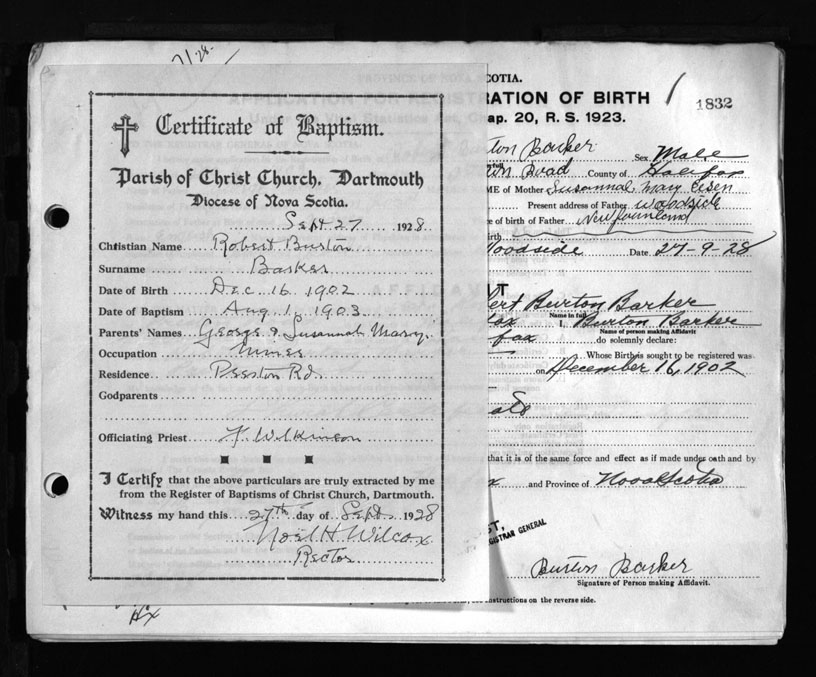 7/28-
Certificate of Baptism.
Parish of Christ Church, Dartmouth
Diocese of Nova Scotia.
Sept 27 1928
Christian Name Robert Burton
Surname Barker
Date of Birth Dec 16 1902
Date of Baptism Aug 1 1903
Parents' Names George & Susannah Mary
Occupation
Residence Preston Rd.
Godparents
Officiating Priest F. Wilkinson
I Certify that the above particulars are truly extracted by me
from the Register of Baptisms of Christ Church, Dartmouth.
Witness my hand this 27th day of Sept. 1928
Noel H. Wilcox
Rector
Hx
COTIA.
RATION OF BIRTH
1832
ap. 20, R. S. 1923.
ton Barker Sex Male
on Road County of Halifax
ME of Mother Susannah Mary
Present address of Father Woodside
e of birth of Father Newfounland
irth
Woodside Date 27-9-28
VIT
ert Burton Barker
Name in full
fax I, Burton Barker
Name of person making Affidavit
fax do solemnly declare:
Whose Birth is sought to be registered was
on December 16, 1902
that it is of the same force and effect as if made under oath and by
x and Province of Nova Scotia
ST,
GISTRAR GENERAL
Burton Barker
Signature of Person making Affidavit.
instructions on the reverse side.